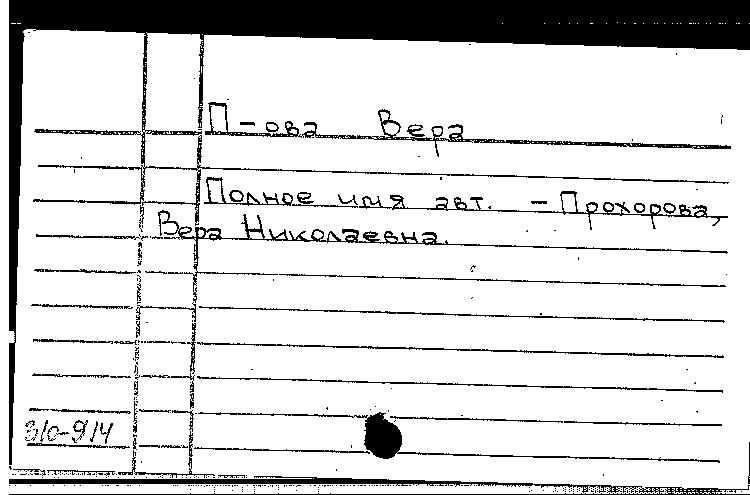 П-ова Вера
Полное имя авт. - Прохорова,
Вера Николаевна.